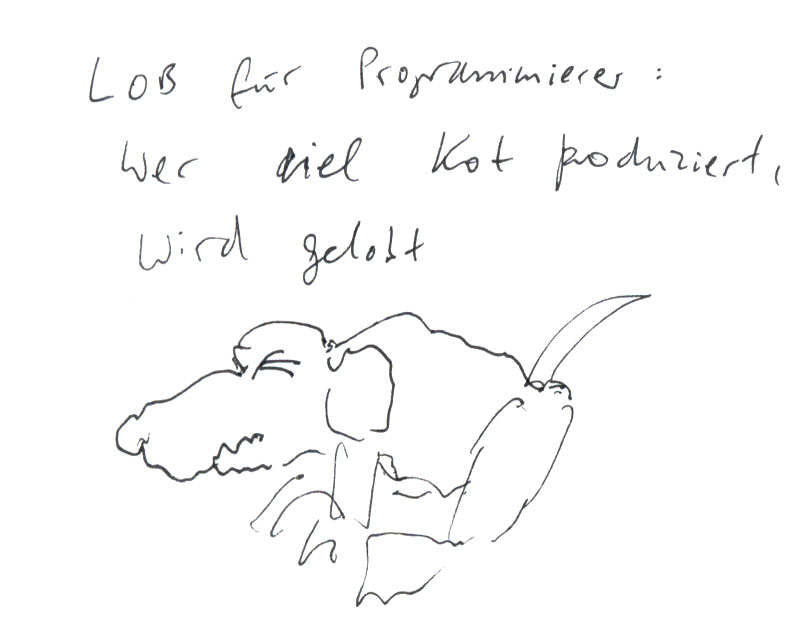 LOB für Programmierer:
Wer viel Kot produziert,
wird gelobt